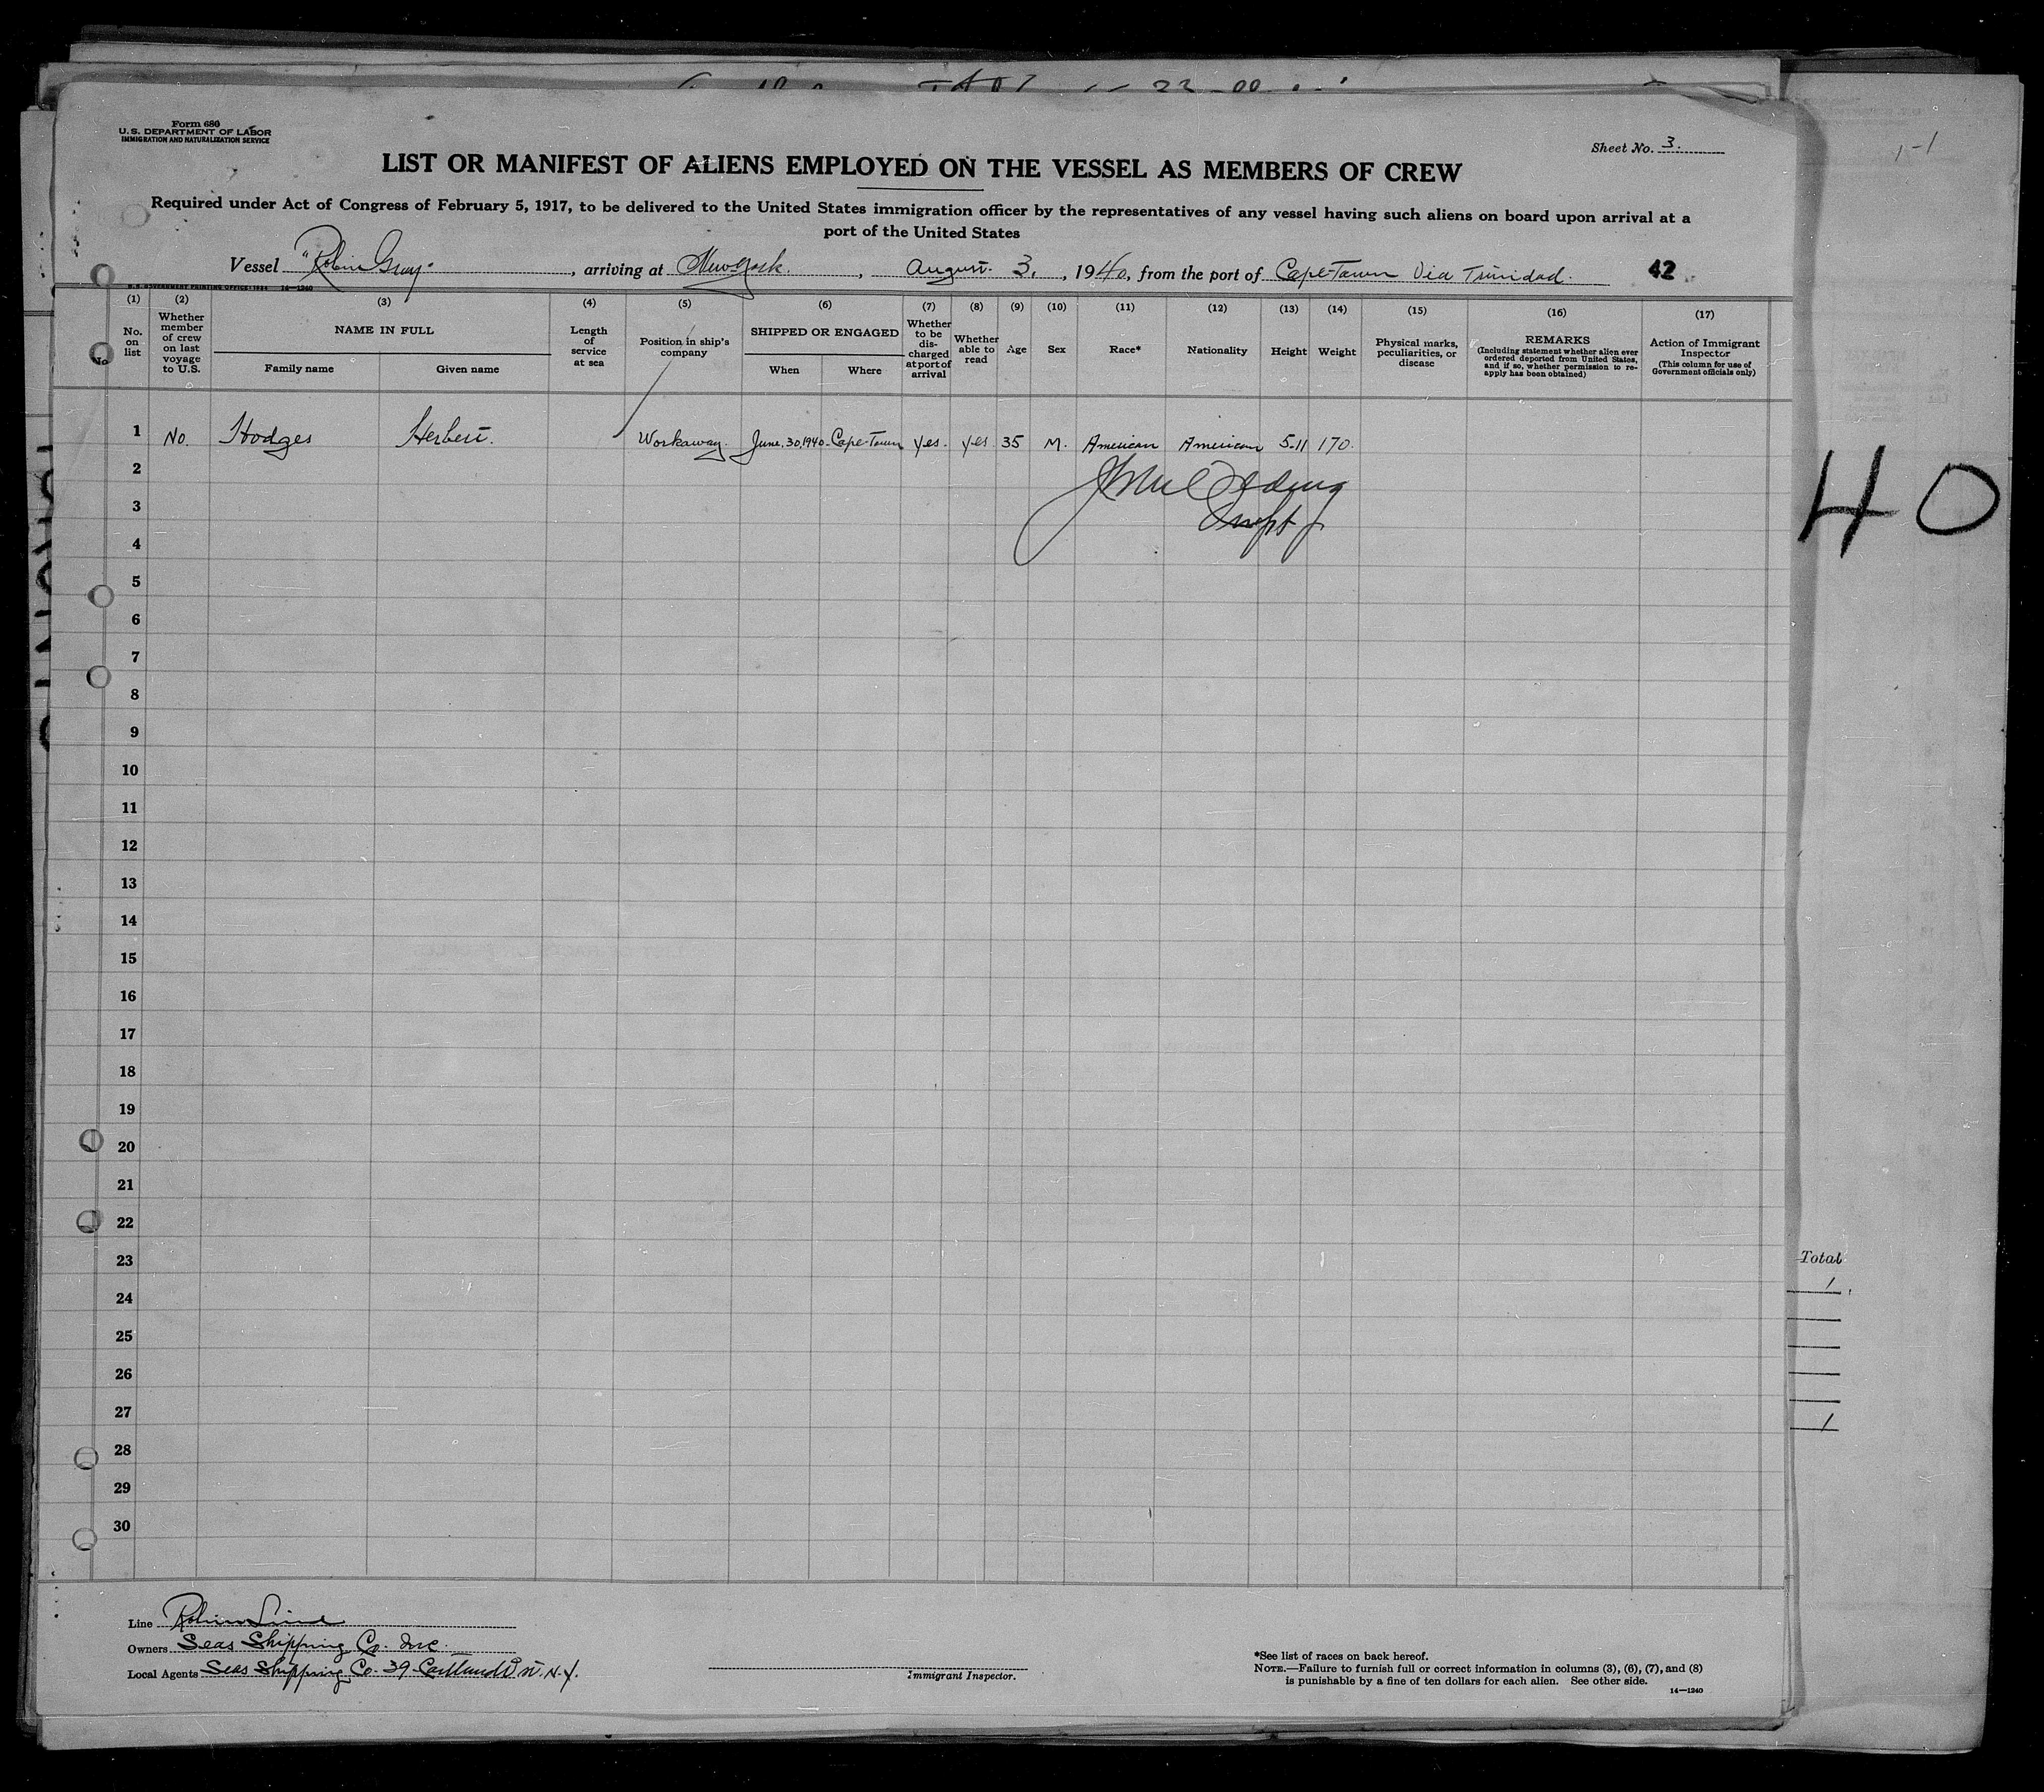 Form 680
U. S. DEPARTMENT OF LABOR
IMMIGRATION AND NATURALIZATION SERVICE
Sheet No. 3.
1-1
LIST OR MANIFEST OF ALIENS EMPLOYED ON THE VESSEL AS MEMBERS OF CREW
Required under Act of Congress of February 5, 1917, to be delivered to the United States immigration officer by the representatives of any vessel having such aliens on board upon arrival at a
port of the United States
Vessel "Robin Gray", arriving at New York., August 3, 1940, from the port of Cape-Town Via Trinidad. 42
U. S. GOVERNMENT PRINTING OFFICE: 1934 14—1240
(1) (2) (3) (4) (5) (6) (7) (8) (9) (10) (11) (12) (13) (14) (15) (16) (17)
No. on list
Whether member of crew on last voyage to U.S.
NAME IN FULL
Family name
Given name
Length of service at sea
Position in ship's company
SHIPPED OR ENGAGED
When
Where
Whether to be discharged at port of arrival
Whether able to read
Age
Sex
Race*
Nationality
Height
Weight
Physical marks, peculiarities, or disease
REMARKS
(Including statement whether alien ever ordered deported from United States, and if so, whether permission to re-apply has been obtained)
Action of Immigrant Inspector
(This column for use of Government officials only)
No
1 No. Hodges Herbert. Workaway. June. 30, 1940 Cape-Town yes. yes 35 M. American American 5-11 170.
2
3
4
40
5
6
7
8
9
10
11
12
13
14
15
16
17
18
19
20
21
22
23
Total
24
1
25
26
27
1
28
29
30
Line Robin Line
Owners Seas Shipping Co. Inc
Local Agents Seas Shipping Co. 39 St. N.Y.
Immigrant Inspector.
*See list of races on back hereof.
NOTE.—Failure to furnish full or correct information in columns (3), (6), (7), and (8)
is punishable by a fine of ten dollars for each alien. See other side.
14—1240